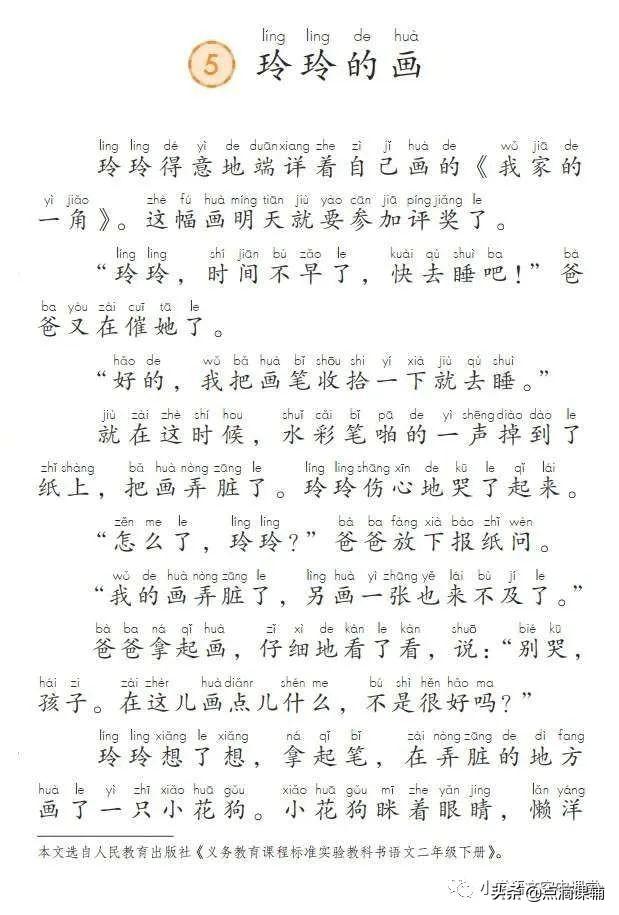 líng líng de huà
5 玲玲的画
líng líng dé yì de duānxiang zhe zì jǐ huà de wǒ jiā de
玲玲得意地端详着自己画的《我家的
yì jiǎo zhè fú huà míng tiān jiù yào cān jiā píng jiǎng le
一角》。这幅画明天就要参加评奖了。
líng líng shí jiān bù zǎo le kuài qù shuì ba bà
“玲玲，时间不早了，快去睡吧！”爸
ba yòu zài cuī tā le
爸又在催她了。
hǎo de wǒ bǎ huà bǐ shōu shi yí xià jiù qù shuì
“好的，我把画笔收拾一下就去睡。”
jiù zài zhè shí hou shuǐ cǎi bǐ pā de yì shēng diào dào le
就在这时候，水彩笔啪的一声掉到了
zhǐ shàng bǎ huà nòng zāng le líng líng shāng xīn de kū le qǐ lái
纸上，把画弄脏了。玲玲伤心地哭了起来。
zěn me le líng líng bà ba fàng xià bào zhǐ wèn
“怎么了，玲玲？”爸爸放下报纸问。
wǒ de huà nòng zāng le lìng huà yì zhāng yě lái bù jí le
“我的画弄脏了，另画一张也来不及了。”
bà ba ná qǐ huà zǐ xì de kàn le kàn shuō bié kū
爸爸拿起画，仔细地看了看，说：“别哭，
hái zi zài zhèr huà diǎnr shén me bú shì hěn hǎo ma
孩子。在这儿画点儿什么，不是很好吗？”
líng líng xiǎng le xiǎng ná qǐ bǐ zài nòng zāng de dì fang
玲玲想了想，拿起笔，在弄脏的地方
huà le yì zhī xiǎo huā gǒu xiǎo huā gǒu mī zhe yǎn jīng lǎn yáng
画了一只小花狗。小花狗眯着眼睛，懒洋
本文选自人民教育出版社《义务教育课程标准实验教科书语文二年级下册》。
头条@点滴课辅